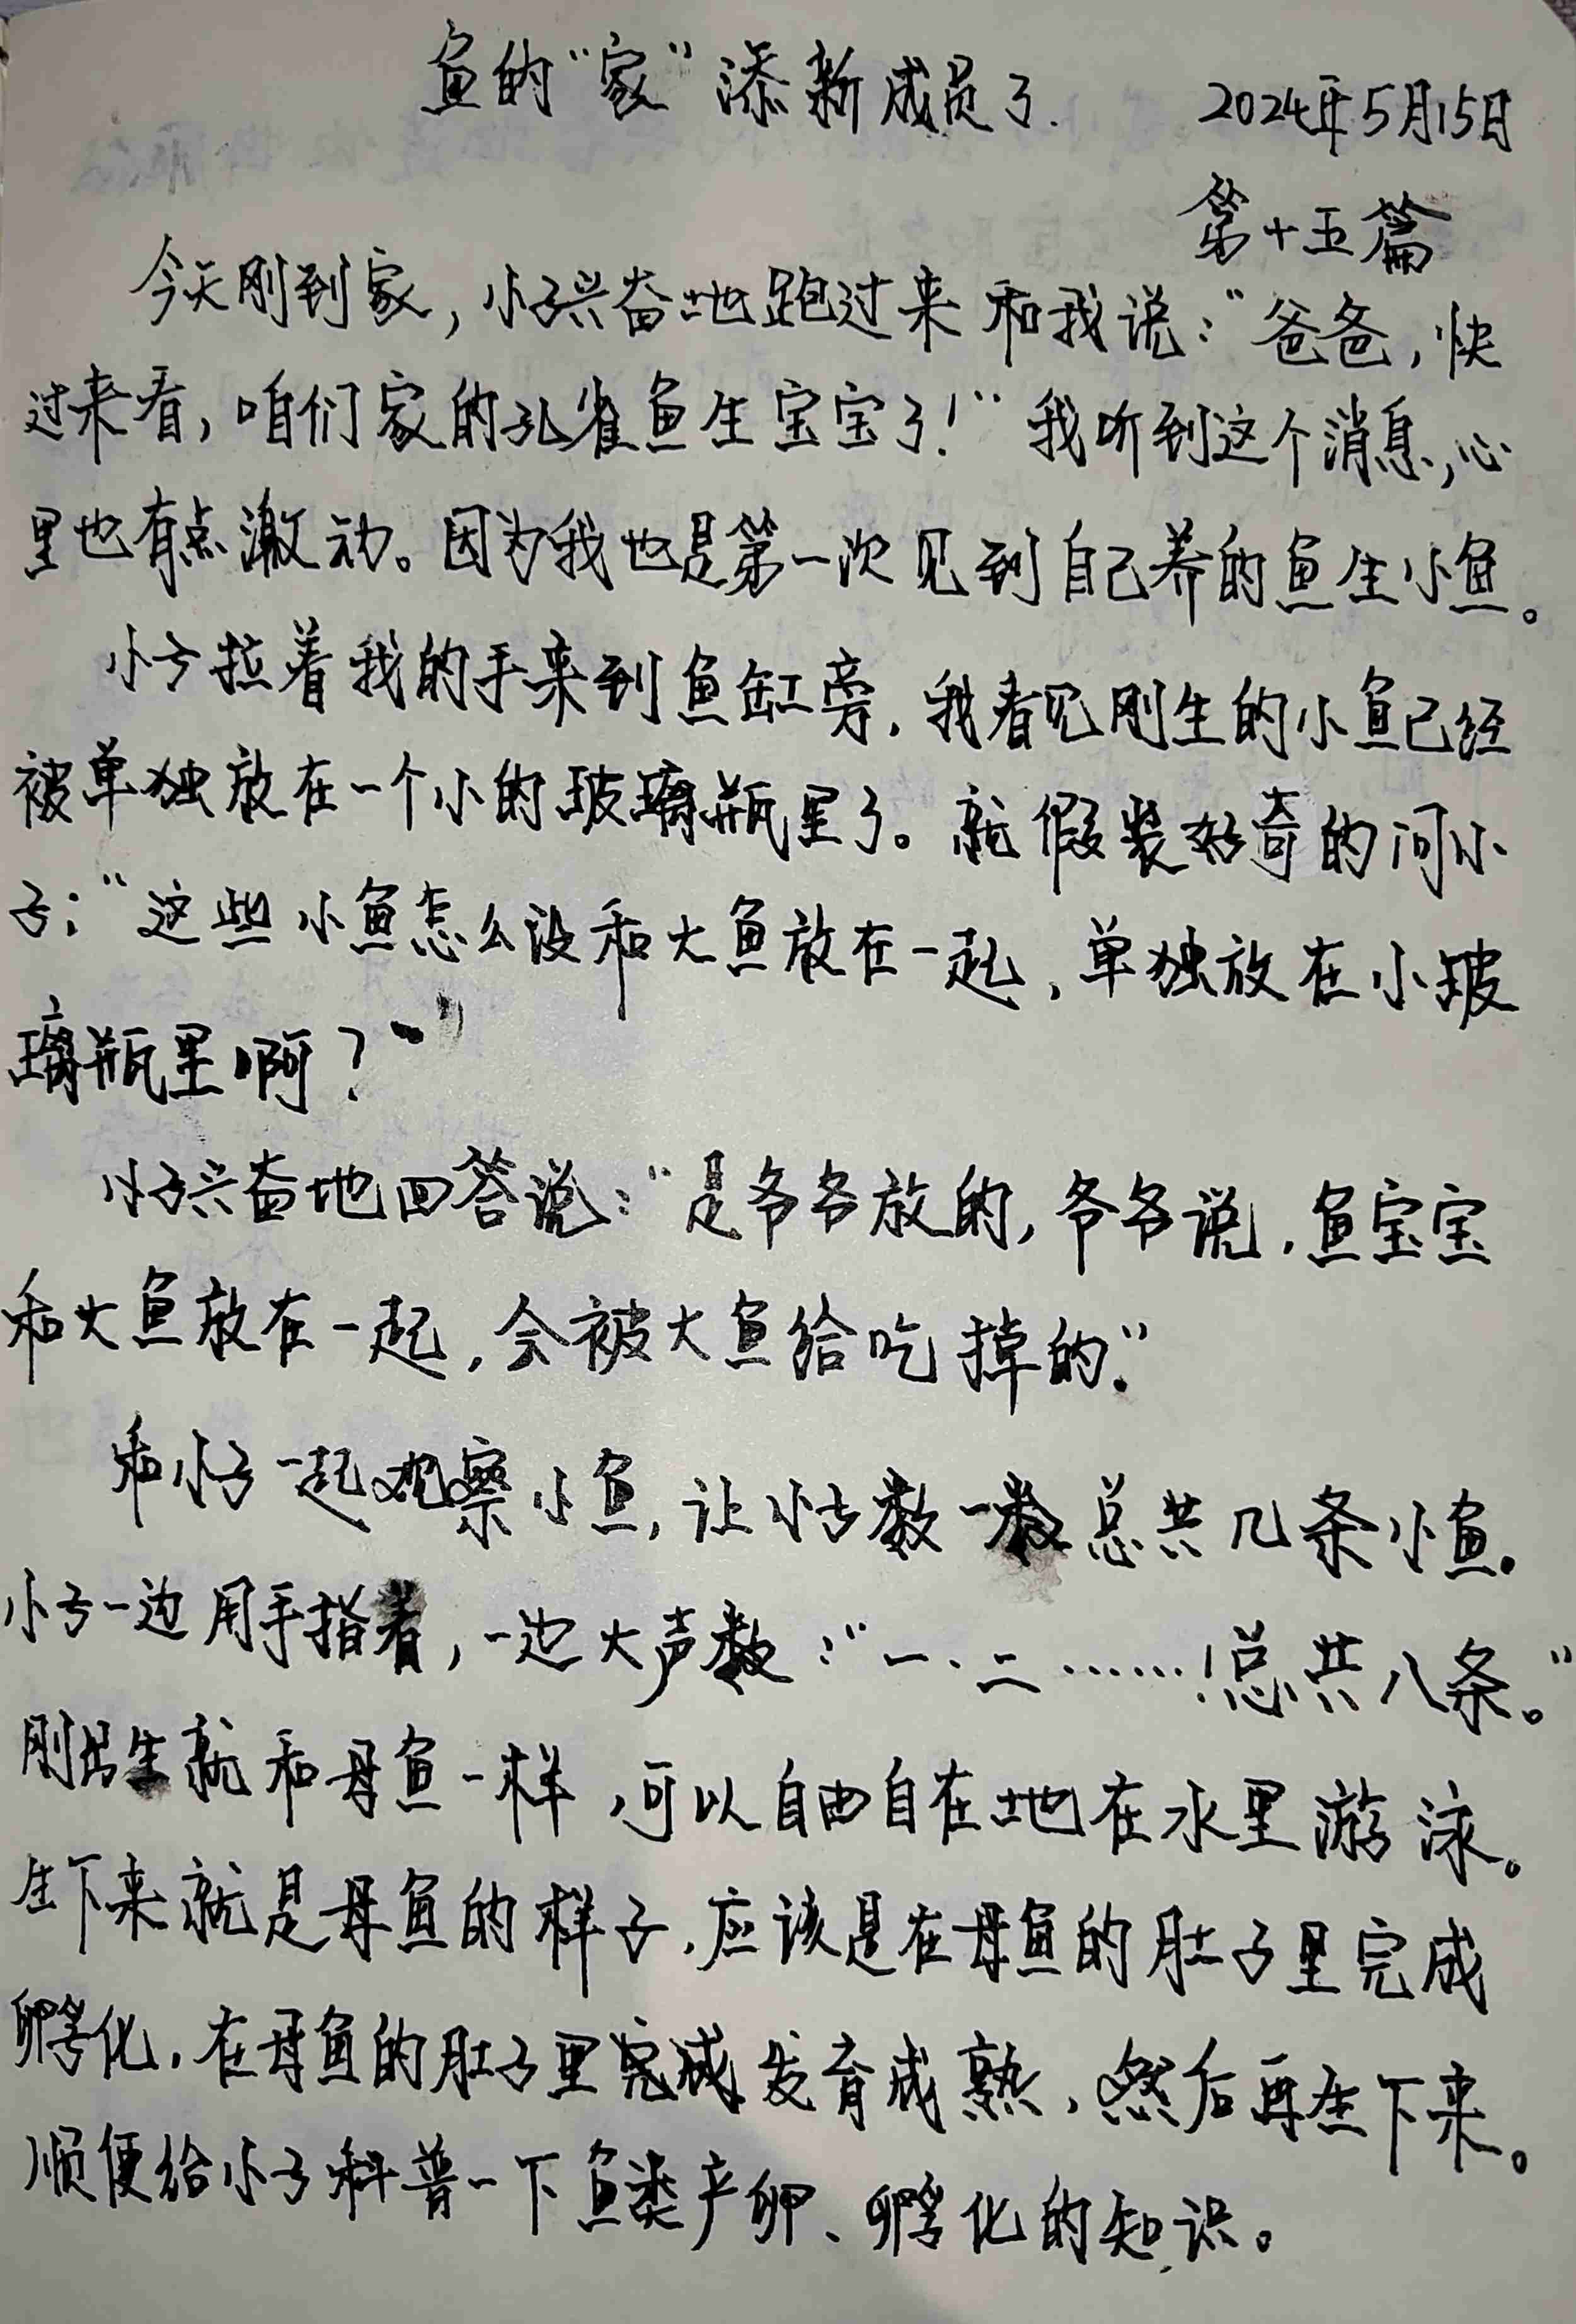 鱼的“家”添新成员了.
2024年5月15日
第十五篇
今天刚到家,小子兴奋地跑过来和我说:“爸爸,快
过来看,咱们家的孔雀鱼生宝宝了!”我听到这个消息,心
里也有点激动。因为我也是第一次见到自己养的鱼生小鱼。
小子拉着我的手来到鱼缸旁,我看见刚生的小鱼已经
被单独放在一个小的玻璃瓶里了。就假装好奇的问小
子:“这些小鱼怎么没和大鱼放在一起,单独放在小玻
璃瓶里啊?”
小子兴奋地回答说:“是爷爷放的,爷爷说,鱼宝宝
和大鱼放在一起,会被大鱼给吃掉的.”
和小子一起观察小鱼,让小子数一数总共几条小鱼.
小子一边用手指着,一边大声数:“一、二……!总共八条。”
刚出生就和母鱼一样,可以自由自在地在水里游泳。
生下来就是母鱼的样子,应该是在母鱼的肚子里完成
孵化,在母鱼的肚子里完成发育成熟,然后再生下来。
顺便给小子科普一下鱼类产卵、孵化的知识。